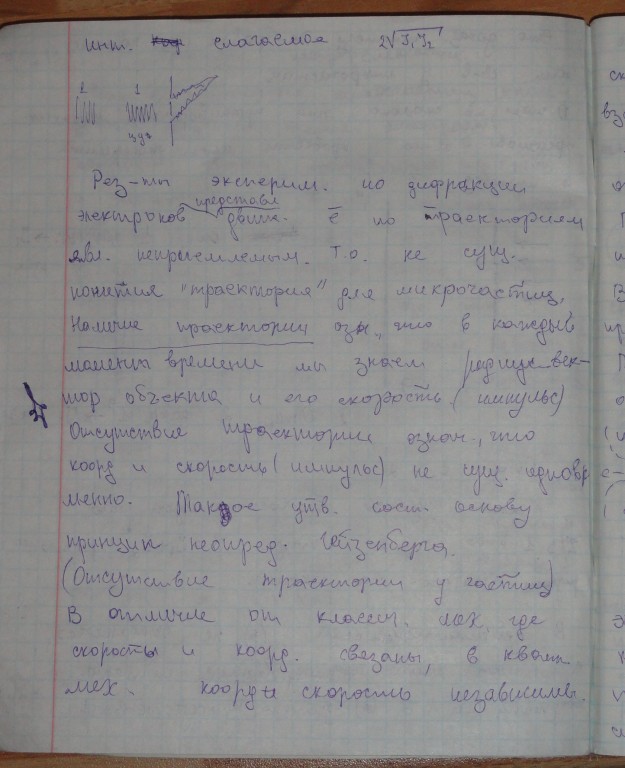 инт. слагаемое 2√J₁J₂
1 1
Рез-ты эксперим. по дифракции
представл
электронов движ. ē по траекториям
явл. неприемлемым. Т.о. не сущ.
понятия "траектория" для микрочастиц.
Наличие траектории озн., что в каждый
момент времени мы знаем радиус-век-
тор объекта и его скорость (импульс)
Отсутствие траектории означ., что
коорд и скорость (импульс) не сущ. одновр
менно. Такое утв. сост. основу
принцип неопред. Гейзенберга.
(Отсутствие траектории у частиц)
В отличие от классич. мех. где
скорость и коорд. связаны, в квант
мех. коорд и скорость независимы.